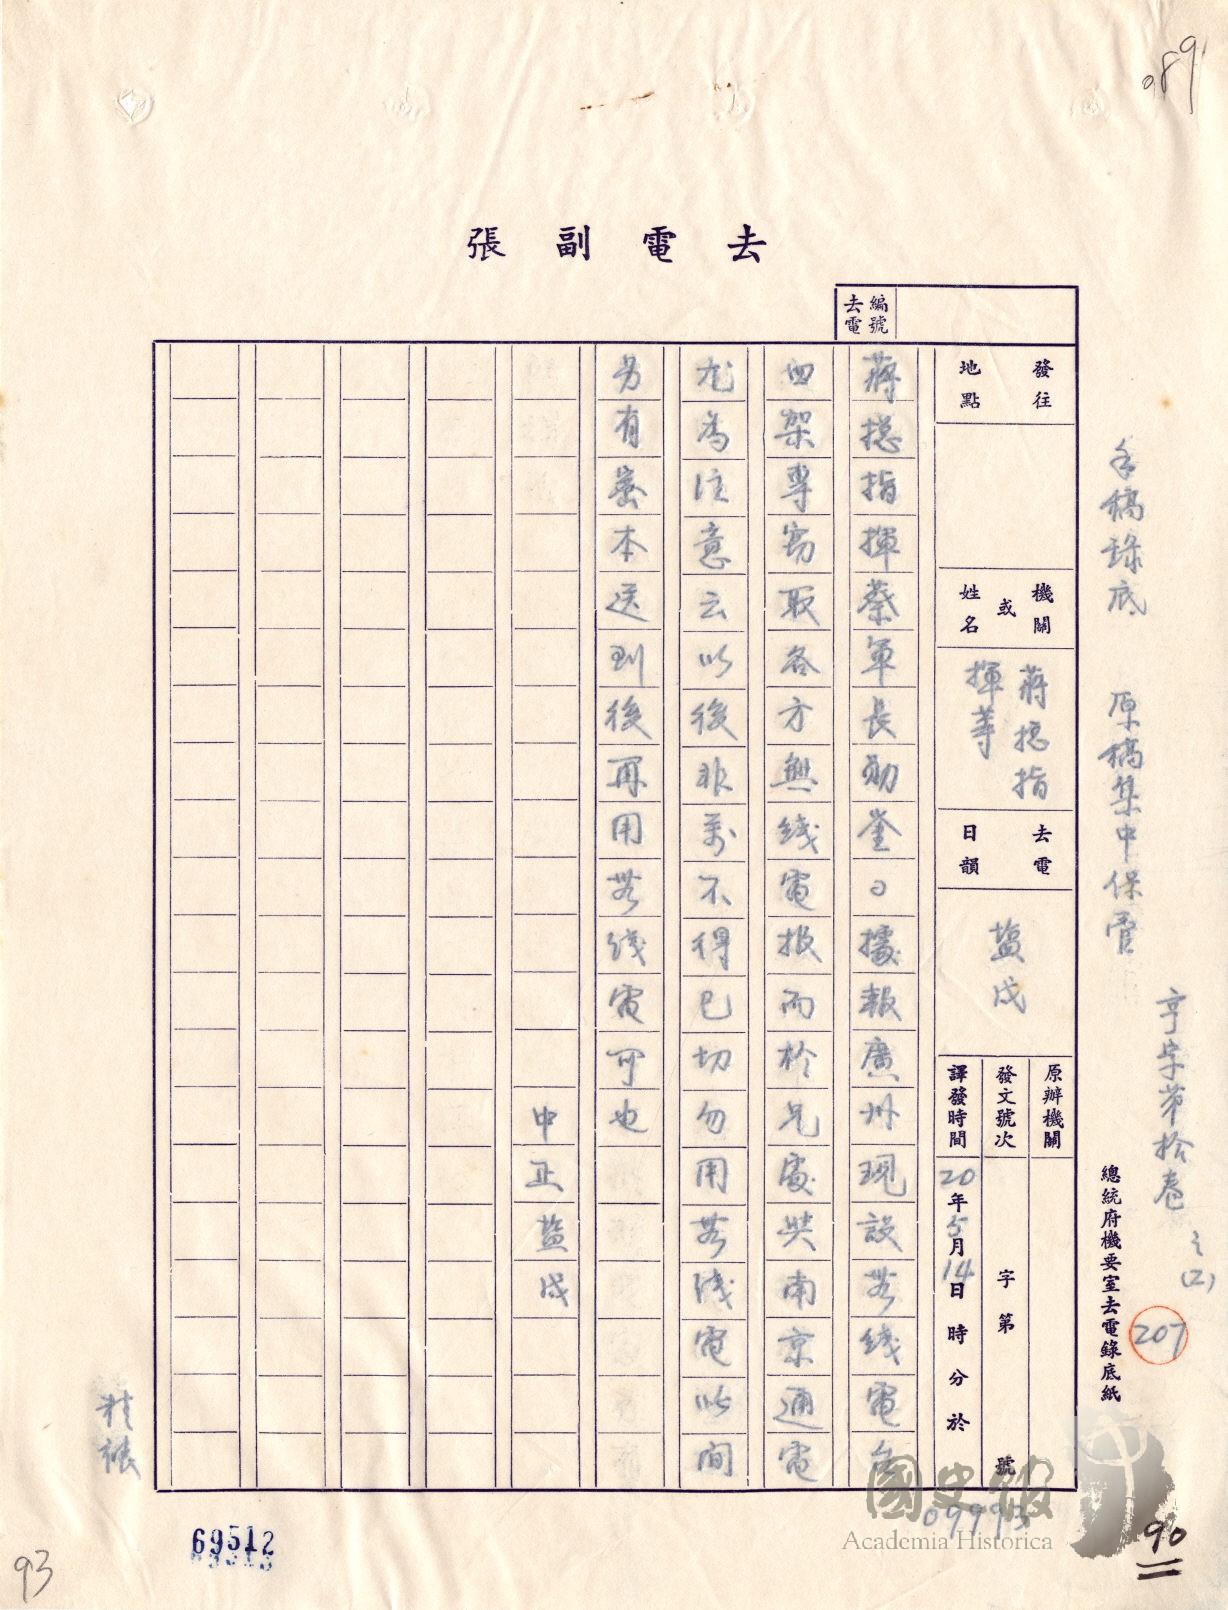 089
去電副張
編號
去電
發往
地點
機關
或
姓名
蔣揔指
揮等
去電
日韻
盐戌
原辦機關
發文號次
字第 號
譯發時間
20年5月14日 時 分於
蔣揔指揮蔡軍長勛鑒日據報廣州現設苦线電台
四架專窃取各方無线電报而於兄處與南京通電
尤為注意云以後非萬不得已切勿用苦线電此間
另有密本送到後再用苦线電可也
中正盐戌
手稿錄底 原稿集中保管
亨字第拾卷之(2)
207
總統府機要室去電錄底紙
國史館
Academia Historica
09993
90
69512
93